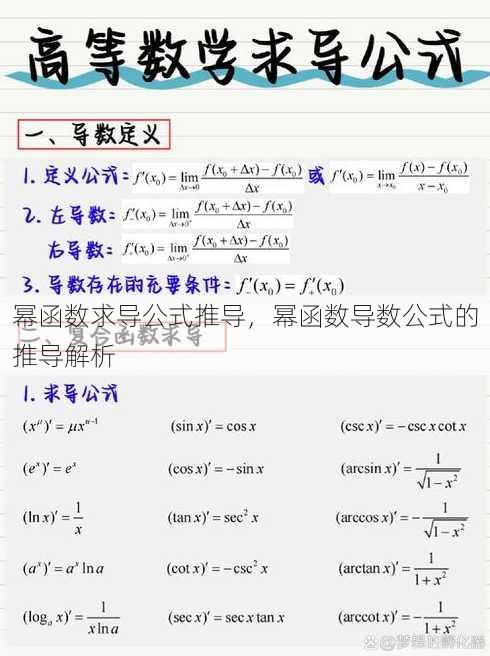 高等数学求导公式
一、导数定义
1. 定义公式: f′(x₀) = lim_{Δx→0} (f(x₀ + Δx) − f(x₀))/Δx 或 f′(x₀) = lim_{x→x₀} (f(x) − f(x₀))/(x − x₀)
2. 左导数: f′₋(x₀) = lim_{Δx→0⁻} (f(x₀ + Δx) − f(x₀))/Δx
右导数: f′₊(x₀) = lim_{Δx→0⁺} (f(x₀ + Δx) − f(x₀))/Δx
3. 导数存在的充要条件: f′₋(x₀) = f′₊(x₀)
幂函数求导公式推导，幂函数导数公式的
二、复合函数求导
推导解析
1. 求导公式
(x^μ)′ = μx^{μ−1} (sin x)′ = cos x (csc x)′ = −csc x cot x
(eˣ)′ = eˣ (cos x)′ = −sin x (arcsin x)′ = 1/√(1−x²)
(ln x)′ = 1/x (tan x)′ = sec² x (arccos x)′ = −1/√(1−x²)
(aˣ)′ = aˣ ln a (cot x)′ = −csc² x (arctan x)′ = 1/(1+x²)
(logₐ x)′ = 1/(x ln a) (sec x)′ = sec x tan x (arccot x)′ = −1/(1+x²)
@梦想的孵化器